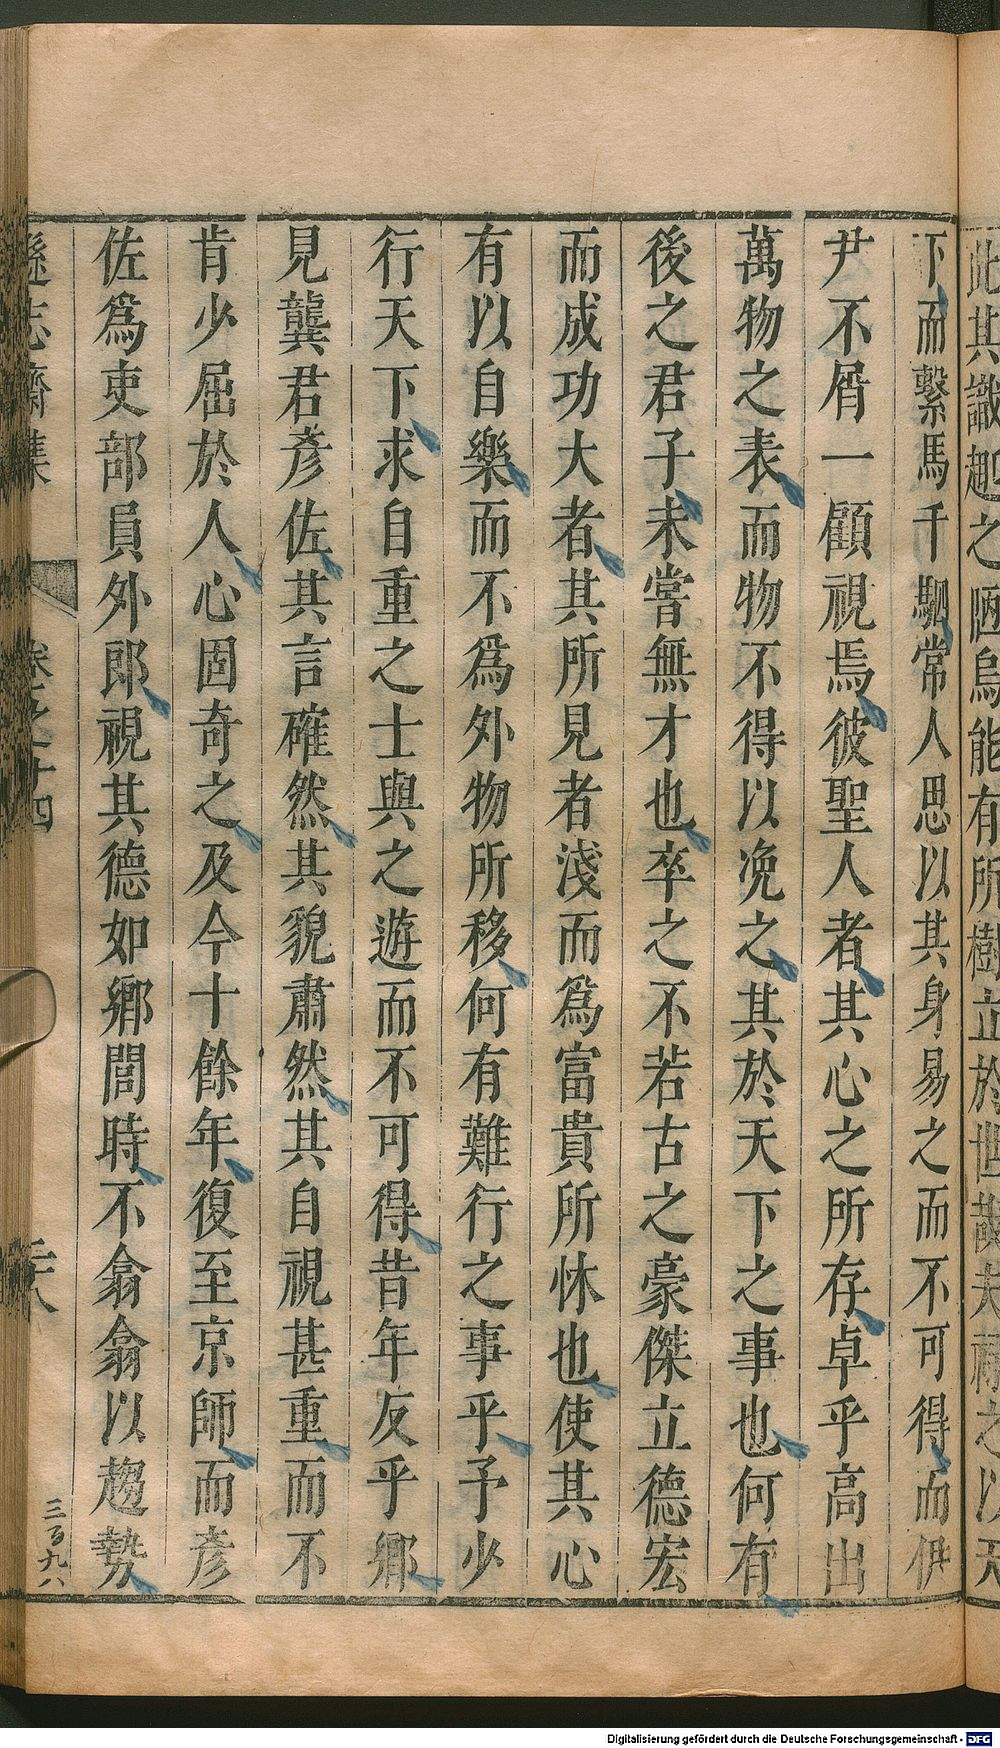 此其識趣之陋烏能有所樹立於世哉夫祿之以天
下而繫馬千駟常人思以其身易之而不可得而伊
尹不屑一顧視焉彼聖人者其心之所存卓乎高出
萬物之表而物不得以浼之其於天下之事也何有
後之君子未嘗無才也卒之不若古之豪傑立德宏
而成功大者其所見者淺而爲富貴所怵也使其心
有以自樂而不爲外物所移何有難行之事乎予少
行天下求自重之士與之遊而不可得昔年友乎鄉
見龔君彥佐其言確然其貌肅然其自視甚重而不
肯少屈於人心固奇之及今十餘年復至京師而彥
佐爲吏部員外郎視其德如鄉閭時不翕翕以趨勢
遜志齋集 卷之十四 二十八
三百九八
Digitalisierung gefördert durch die Deutsche Forschungsgemeinschaft - DFG